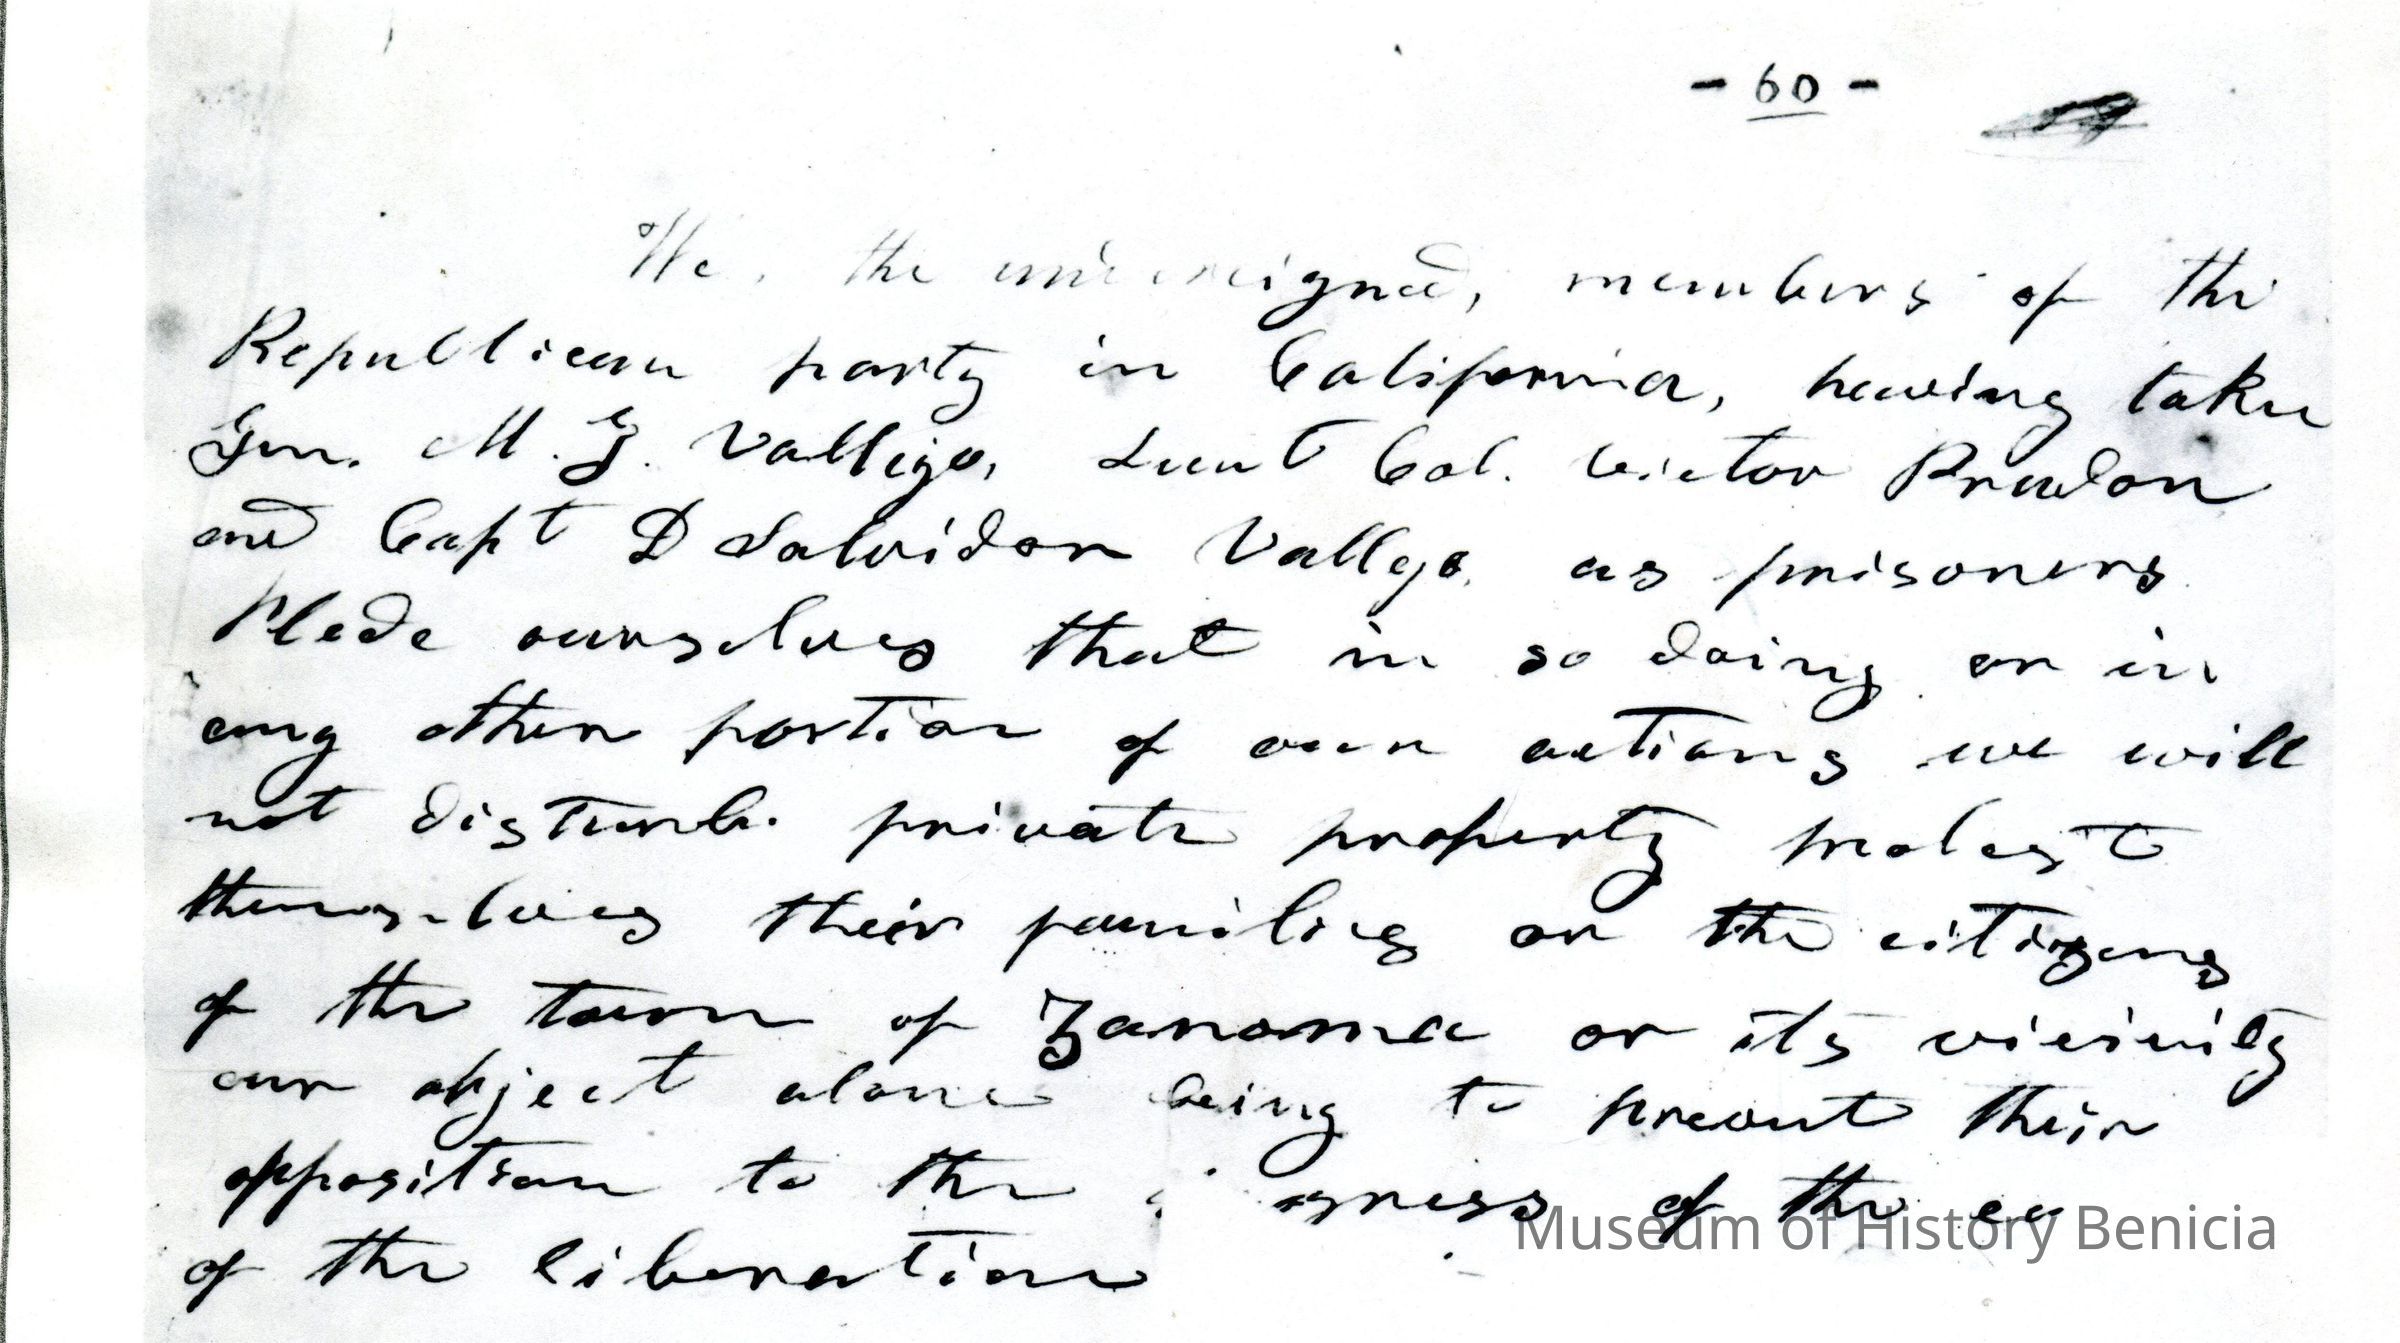 - 60 -
We, the undersigned, members of the
Republican party in California, having taken
Gen. M. G. Vallejo, Lieut Col. Victor Prudon
and Capt D Salvidor Vallejo, as prisoners
Plede ourselves that in so doing or in
any other portion of our actions we will
not disturb private property molest
themselves their families or the citizens
of the town of Zanoma or its vicinity
our object alone being to prevent their
opposition to the of the
of the liberation
Museum of History Benicia